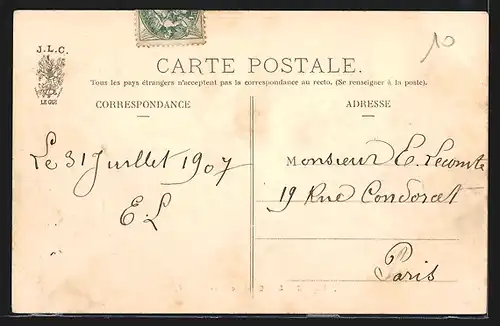 J.L.C.
LE GUI
10
CARTE POSTALE.
Tous les pays étrangers n'acceptent pas la correspondance au recto. (Se renseigner à la poste).
CORRESPONDANCE
ADRESSE
Le 31 Juillet 1907
E. L
Monsieur E. Lecomte
19 Rue Condorcet
Paris